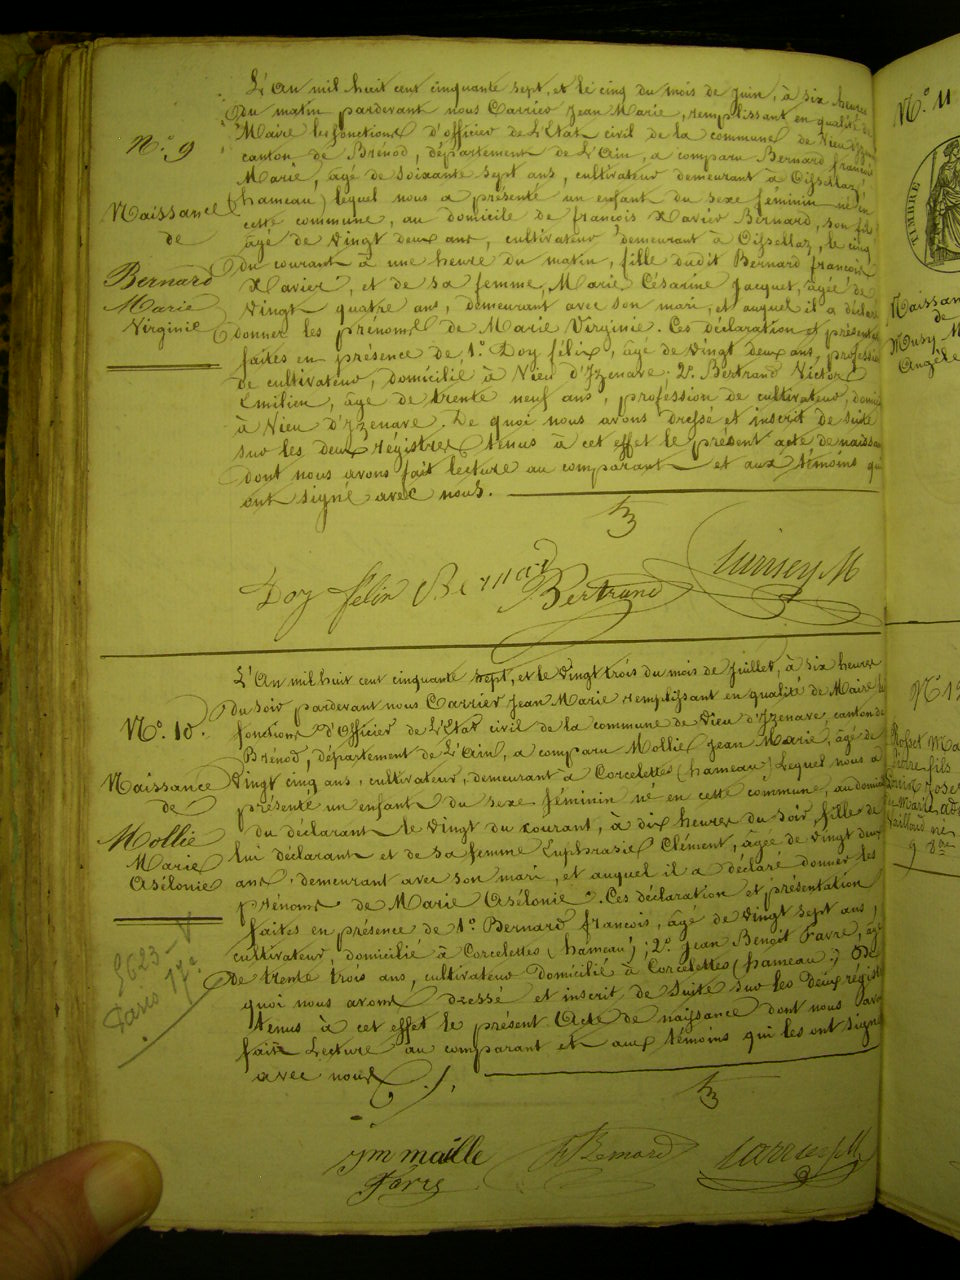 N.º 9
Naissance
de
Bernard
Marie
Virginie
L'An mil huit cent cinquante sept, et le cinq du mois de Juin, à six heures
du matin pardevant nous Carrier Jean Marie, remplissant en qualité de
Maire les fonctions d'officier de l'Etat civil de la commune de Vieu d'Izenave
canton de Brénod, département de l'Ain, a comparu Bernard françois
Marie, âgé de soixante sept ans, cultivateur demeurant à Oissellaz,
(hameau) lequel nous a présenté un enfant du sexe féminin né en
cette commune, au domicile de françois Xavier Bernard, son fils
âgé de vingt deux ans, cultivateur demeurant à Oissellaz, le cinq
du courant à une heure du matin, fille dudit Bernard françois
Xavier, et de sa femme, Marie Césarine Jacquet, âgée de
vingt quatre ans, demeurant avec son mari, et auquel il a déclaré
donner les prénoms de Marie Virginie. Ces déclaration et présentation
faites en présence de, 1.º Doy félix, âgé de vingt deux ans, profession
de cultivateur, domicilié à Vieu d'Izenave. 2.º Bertrand Victor
Emilien, âgé de trente neuf ans, profession de cultivateur, domicilié
à Vieu d'Izenave. De quoi nous avons dressé et inscrit de suite
sur les deux régistres tenus à cet effet le présent acte de naissance
dont nous avons fait lecture au comparant et aux témoins qui
ont signé avec nous.
Doy félix Bernard Bertrand Carrier J M
N.º 10.
Naissance
de
Mollie
Marie
Asélonie
L'An mil huit cent cinquante sept, et le vingt trois du mois de Juillet, à six heures
du soir pardevant nous Carrier Jean Marie remplissant en qualité de Maire les
fonctions d'Officier de l'Etat civil de la commune de Vieu d'Izenave, canton de
Brénod, département de l'Ain, a comparu Mollie Jean Marie, âgé de
vingt cinq ans, cultivateur, demeurant à Corcelettes (hameau) Lequel nous a
présenté un enfant du sexe féminin né en cette commune, au domicile
du déclarant le vingt du courant, à dix heures du soir, fille de
lui déclarant et de sa femme Euphrasie Clément, âgée de vingt deux
ans, demeurant avec son mari, et auquel il a déclaré donner les
prénoms de Marie Asélonie. Ces déclaration et présentation
faites en présence de 1.º Bernard françois, âgé de vingt sept ans,
cultivateur, domicilié à Corcelettes (hameau), 2.º Jean Benoit Favre, âgé
de trente trois ans, cultivateur domicilié à Corcelettes (hameau.) De
quoi nous avons dressé et inscrit de suite sur les deux régistres
tenus à cet effet le présent Acte de naissance dont nous avons
fait Lecture au comparant et aux témoins qui les ont signé
avec nous
Paris 17e
jm maille Bernard Carrier J M
N.º 11
TIMBRE
Naissance
de
Musy M
Angèle
N.º 12